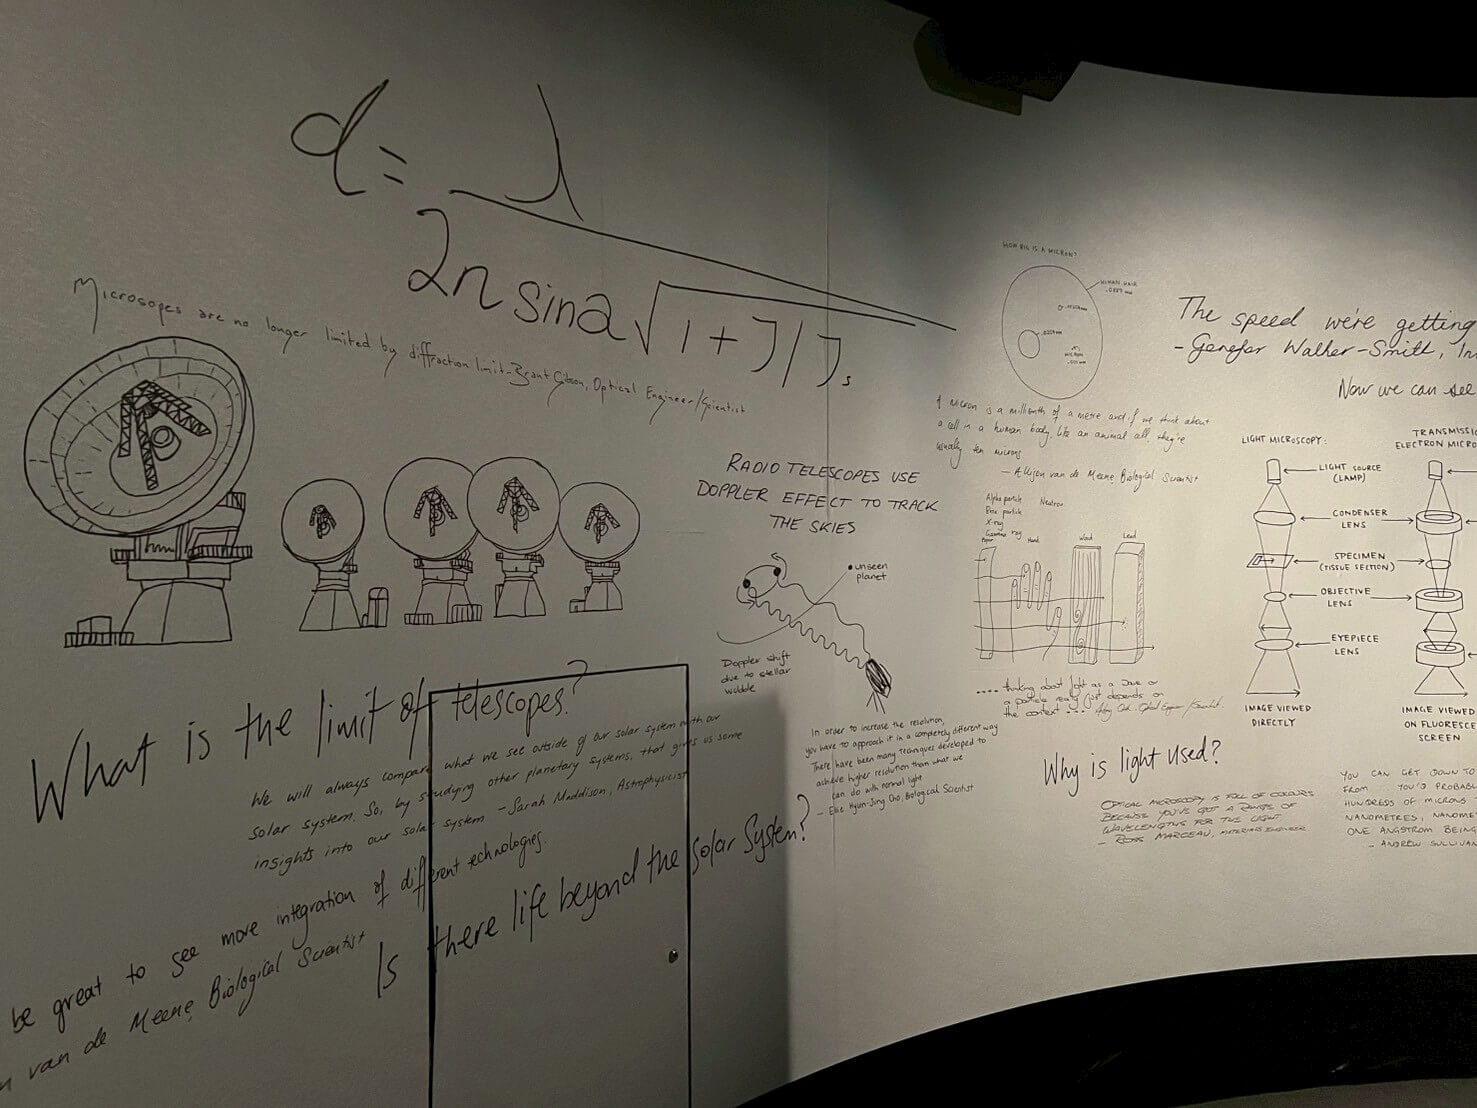 d = λ
2n sinα √1 + I/Is
Microsopes are no longer limited by diffraction limit - Brant Gibson, Optical Engineer/Scientist
RADIO TELESCOPES USE
DOPPLER EFFECT TO TRACK
THE SKIES
unseen
planet
Doppler shift
due to stellar
wobble
What is the limit of telescopes?
We will always compare what we see outside of our solar system with our
solar system. So, by studying other planetary systems, that gives us some
insights into our solar system - Sarah Maddison, Astrophysicist
be great to see more integration of different technologies.
van de Meene, Biological Scientist
Is there life beyond the solar system?
In order to increase the resolution,
you have to approach it in a completely different way
There have been many techniques developed to
achieve higher resolution than what we
can do with normal light
Hyun-Jung Cho, Biological Scientist
HOW BIG IS A MICRON?
HUMAN HAIR
MICRON
A micron is a millionth of a metre and if we think about
a cell in a human body, like an animal cell, they're
usually ten microns
- Allison van de Meene, Biological Scientist
Alpha particle
Beta particle
X-ray
Gamma ray
Neutron
Paper
Hand
Wood
Lead
.... thinking about light as a wave or
a particle really just depends on
the context ---
Why is light used?
OPTICAL MICROSCOPY IS FULL OF COLOURS
BECAUSE YOU'VE GOT A RANGE OF
WAVELENGTHS FOR THE LIGHT
- ROSS MARCEAU, MATERIALS ENGINEER
The speed we're getting
- Genefor Walker-Smith,
Now we can see
LIGHT MICROSCOPY:
LIGHT SOURCE
(LAMP)
CONDENSER
LENS
SPECIMEN
(TISSUE SECTION)
OBJECTIVE
LENS
EYEPIECE
LENS
IMAGE VIEWED
DIRECTLY
TRANSMISSIO
ELECTRON MICRO
IMAGE VIEWED
ON FLUORESCE
SCREEN
YOU CAN GET DOWN TO
FROM YOU'D PROBABL
HUNDREDS OF MICRONS
NANOMETRES, NANOME
ONE ANGSTROM BEING
- ANDREW SULLIVAN